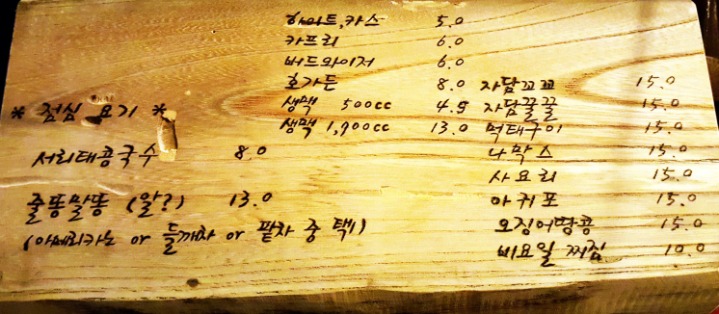 하이트,카스 5.0
카프리 6.0
버드와이저 6.0
호가든 8.0
생맥 500cc 4.5
생맥 1,900cc 13.0
* 점심 요기 *
서리태콩국수 8.0
줄똥말똥 (알?) 13.0
(아메리카노 or 들깨차 or 팥차 중 택1)
자담꼬꼬 15.0
자담꿀꿀 15.0
먹태구이 15.0
나막스 15.0
사요리 15.0
아귀포 15.0
오징어땅콩 15.0
비요일 찌짐 10.0